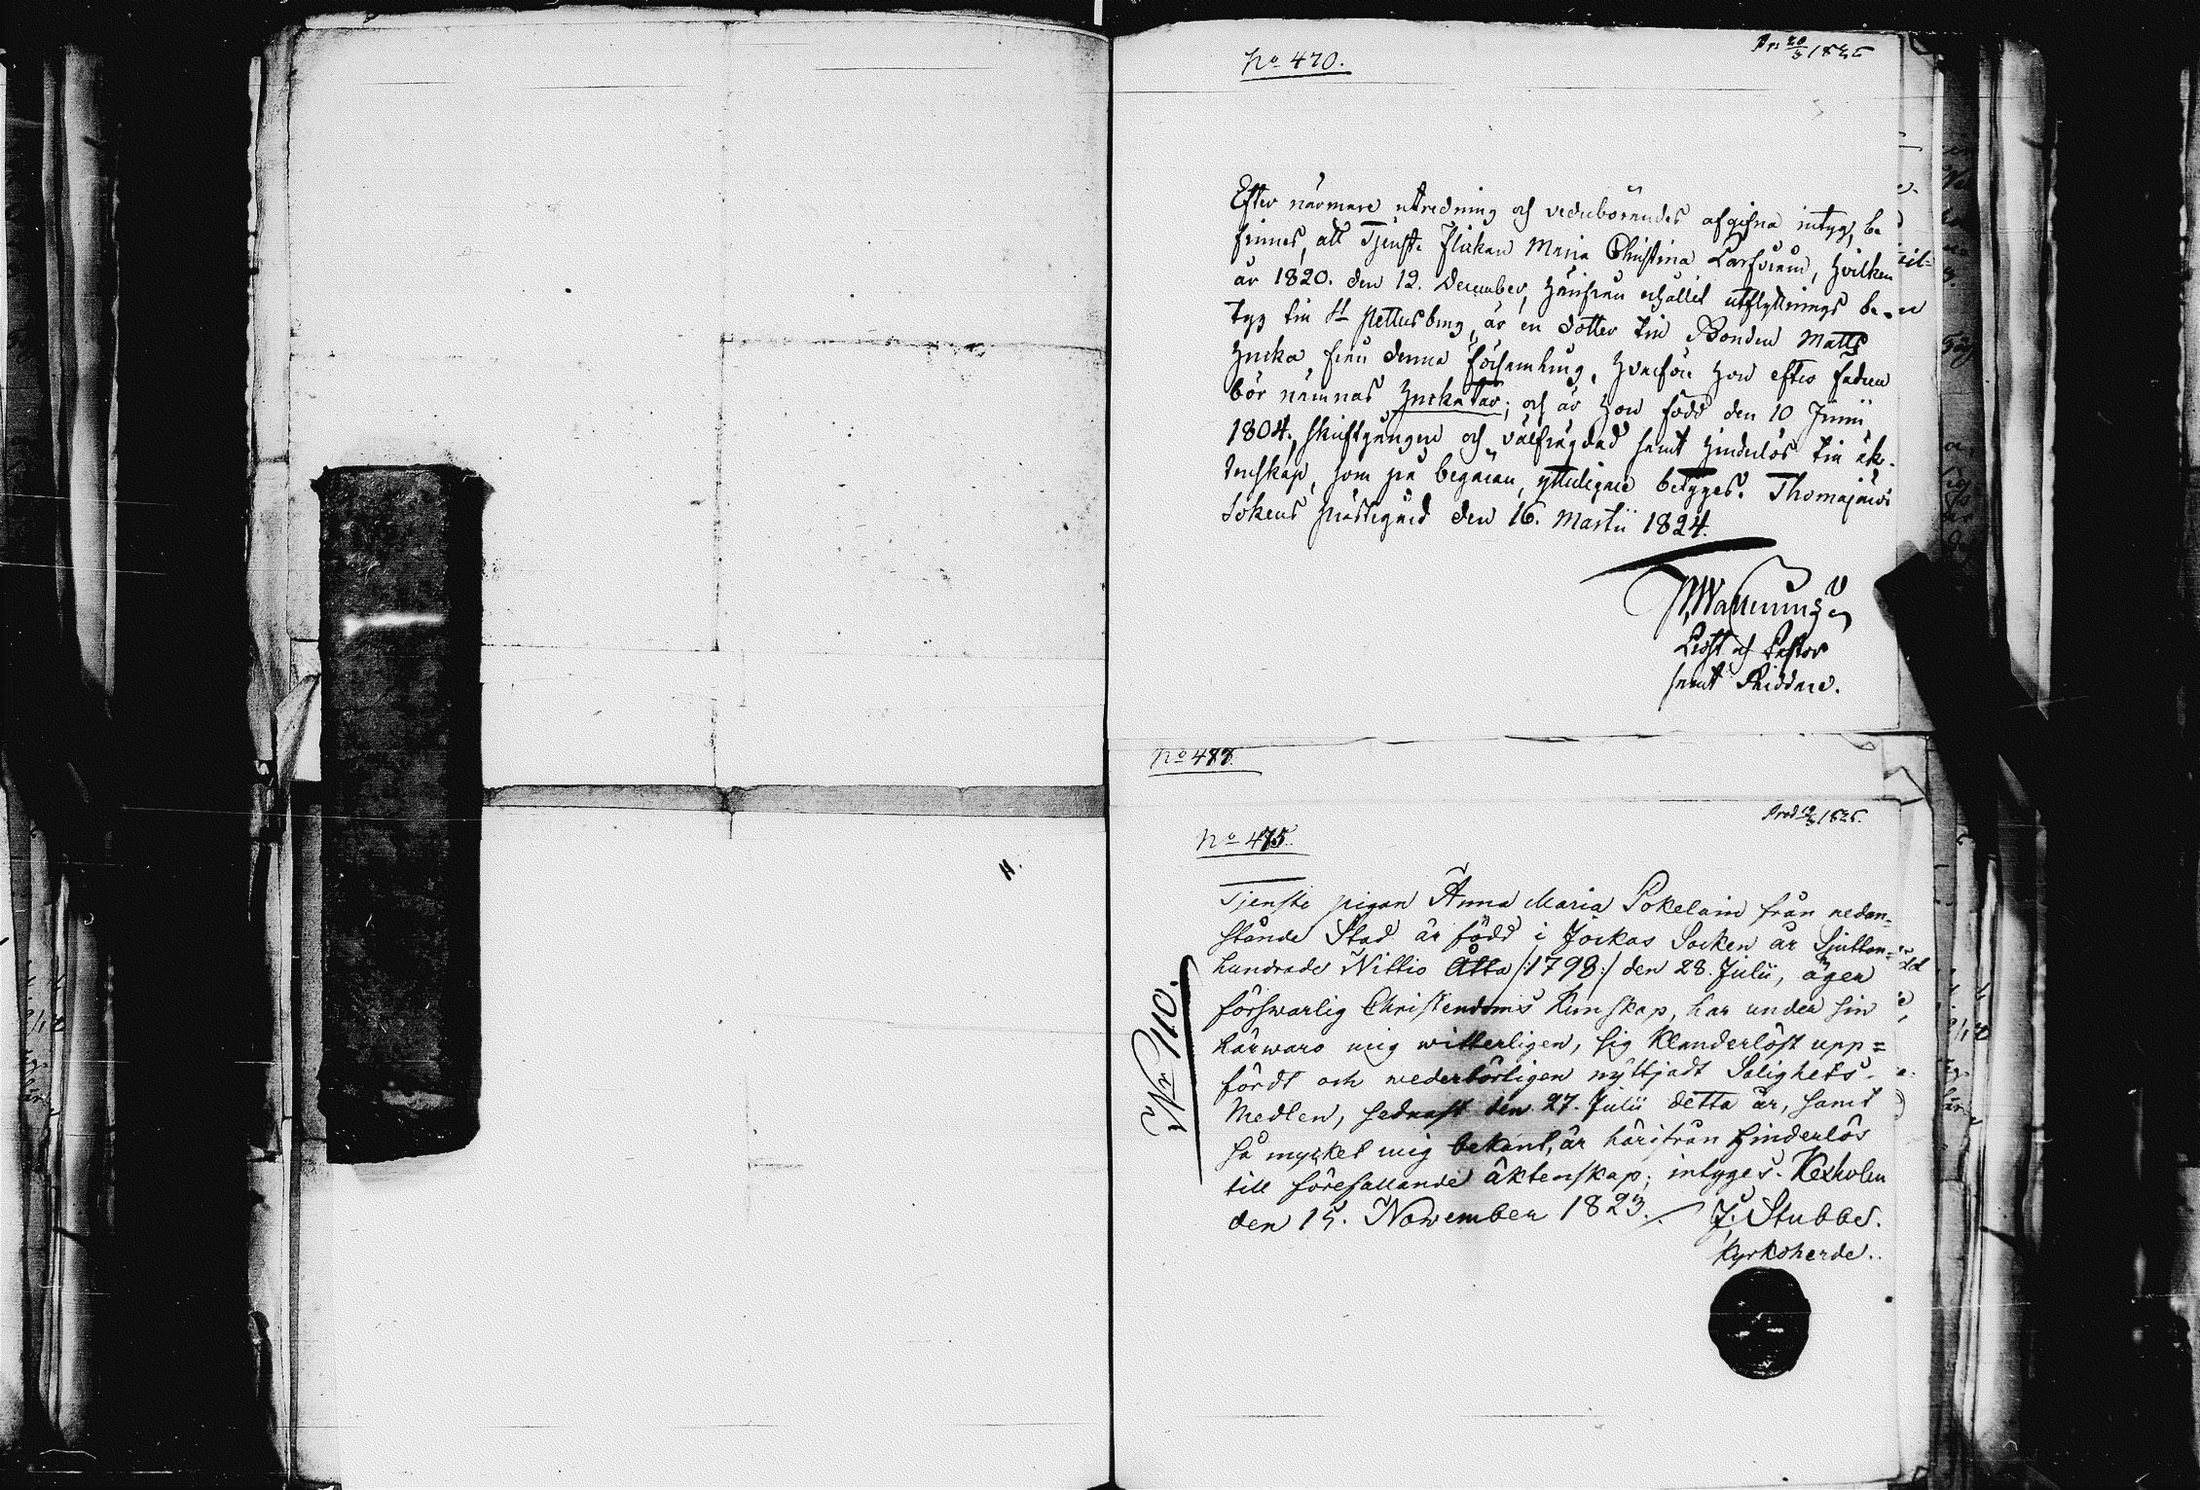 No 470.
1825
Efter närmare utredning och vederbörandes afgifna intyg, be
finnes, att Tjenste flickan Maria Christina Larsdotter, hvilken
år 1820. den 12. December, härifrån erhållit utflyttnings be-
tyg till St Pettersburg, är en dotter till Bonden Matts
Hucka från denna församling, hvarföre hon efter fadren
bör nämnas Huckatar; och är hon född den 10 Junii
1804, skriftgången och välfrägdad samt hinderlös till äk-
tenskap, som på begäran, ytterligare betyges. Thomajärvi
Sokens prästegård den 16. Martii 1824.
Prost och Pastor
samt Riddare.
No
1825.
No 475.
Tjenste pigan Anna Maria Pokelain från nedan-
stånde Stad är född i Jockas Socken år Sjutton-
hundrade Nittio Åtta /:1798:/ den 28. Julii, äger
förswarlig Christendoms Kunskap, har under sin
härwaro mig witterligen, sig Klanderlöst upp=
fördt och wederbörligen nyttjadt Salighets-
Medlen, sednast den 27. Julii detta år, samt
så mycket mig bekant, är härifrån hinderlös
till förefallande äktenskap; intyges. Kexholm
den 15. November 1823. J. Stubbe.
Kyrkoherde.
Nr 110.